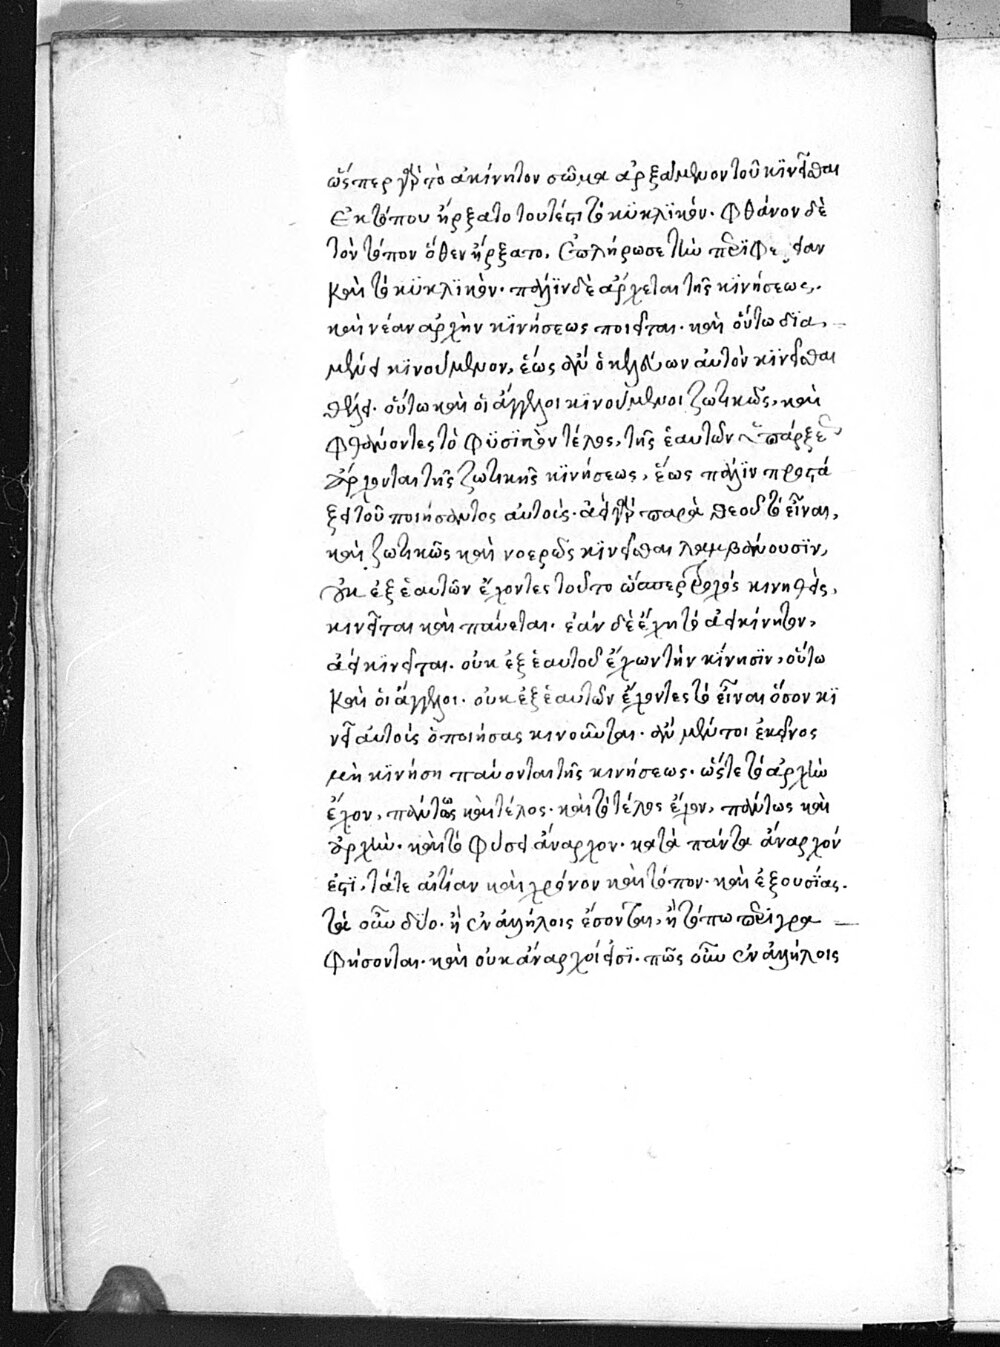 ὥσπερ γὰρ τὸ ἀκίνητον σῶμα ἀρξάμενον τοῦ κϊνεῖσθαι
ἐκ τόπου ἤρξατο τουτέστι τὸ κϋκλϊκόν· φθάνον δὲ
τὸν τόπον ὅθεν ἤρξατο, ἐπλήρωσε τὴν περϊφέρειαν
καὶ τὸ κϋκλϊκὸν· πάλϊν δὲ ἄρχεται τῆς κϊνήσεως,
καὶ νέαν ἀρχὴν κϊνήσεως ποιεῖται· καὶ οὕτω δϊα
μένει κϊνούμενον, ἕως οὗ ὁ κελεύων αὐτὸν κϊνεῖσθαι
θέλει· οὕτω καὶ οἱ ἄγγελοι κϊνούμενοι ζωτικῶς, καὶ
φθάνοντες τὸ φϋσϊκὸν τέλος, τῆς ἑαυτῶν ὑπάρξεως
ἄρχονται τῆς ζωτικῆς κϊνήσεως, ἕως πάλϊν προστά
ξει τοῦ ποιήσαντος αὐτοὺς· ἀεὶ γὰρ παρὰ θεοῦ τὸ εἶναι,
καὶ ζωτικῶς καὶ νοερῶς κϊνεῖσθαι λαμβάνουσϊν,
οὐκ ἐξ ἑαυτῶν ἔχοντες τοῦτο ὥσπερ τροχὸς κινηθεὶς,
κινεῖται καὶ παύεται· ἐάν δὲ ἔχη τὸ ἀεικίνητον,
ἀεὶ κϊνεῖται· οὐκ ἐξ ἑαυτοῦ ἔχων τὴν κϊνησϊν, οὕτω
καὶ οἱ ἄγγελοι· οὐκ ἐξ ἑαυτῶν ἔχοντες τὸ εἶναι ὅσον κϊ
νεῖ αὐτοὺς ὁ ποιήσας κινοῦνται· ἂν μέντοι ἐκεῖνος
μὴ κϊνήση παύονται τῆς κινήσεως· ὥστε τὸ ἀρχὴν
ἔχον, πάντως καὶ τέλος· καὶ τὸ τέλος ἔχον, πάντως καὶ
ἀρχὴν· καὶ τὸ φύσει ἄναρχον· κατὰ πάντα ἄναρχόν
ἐστϊ, τάτε αἰτίαν καὶ χρόνον καὶ τόπον· καὶ ἐξουσίας·
τὰ οὖν δϋο· ἢ ἐν ἀλλήλοις ἔσονται, ἢ τόπω περϊγρα
φήσονται· καὶ οὐκ ἄναρχοί εἰσϊ· πῶς οὖν ἐν ἀλλήλοις